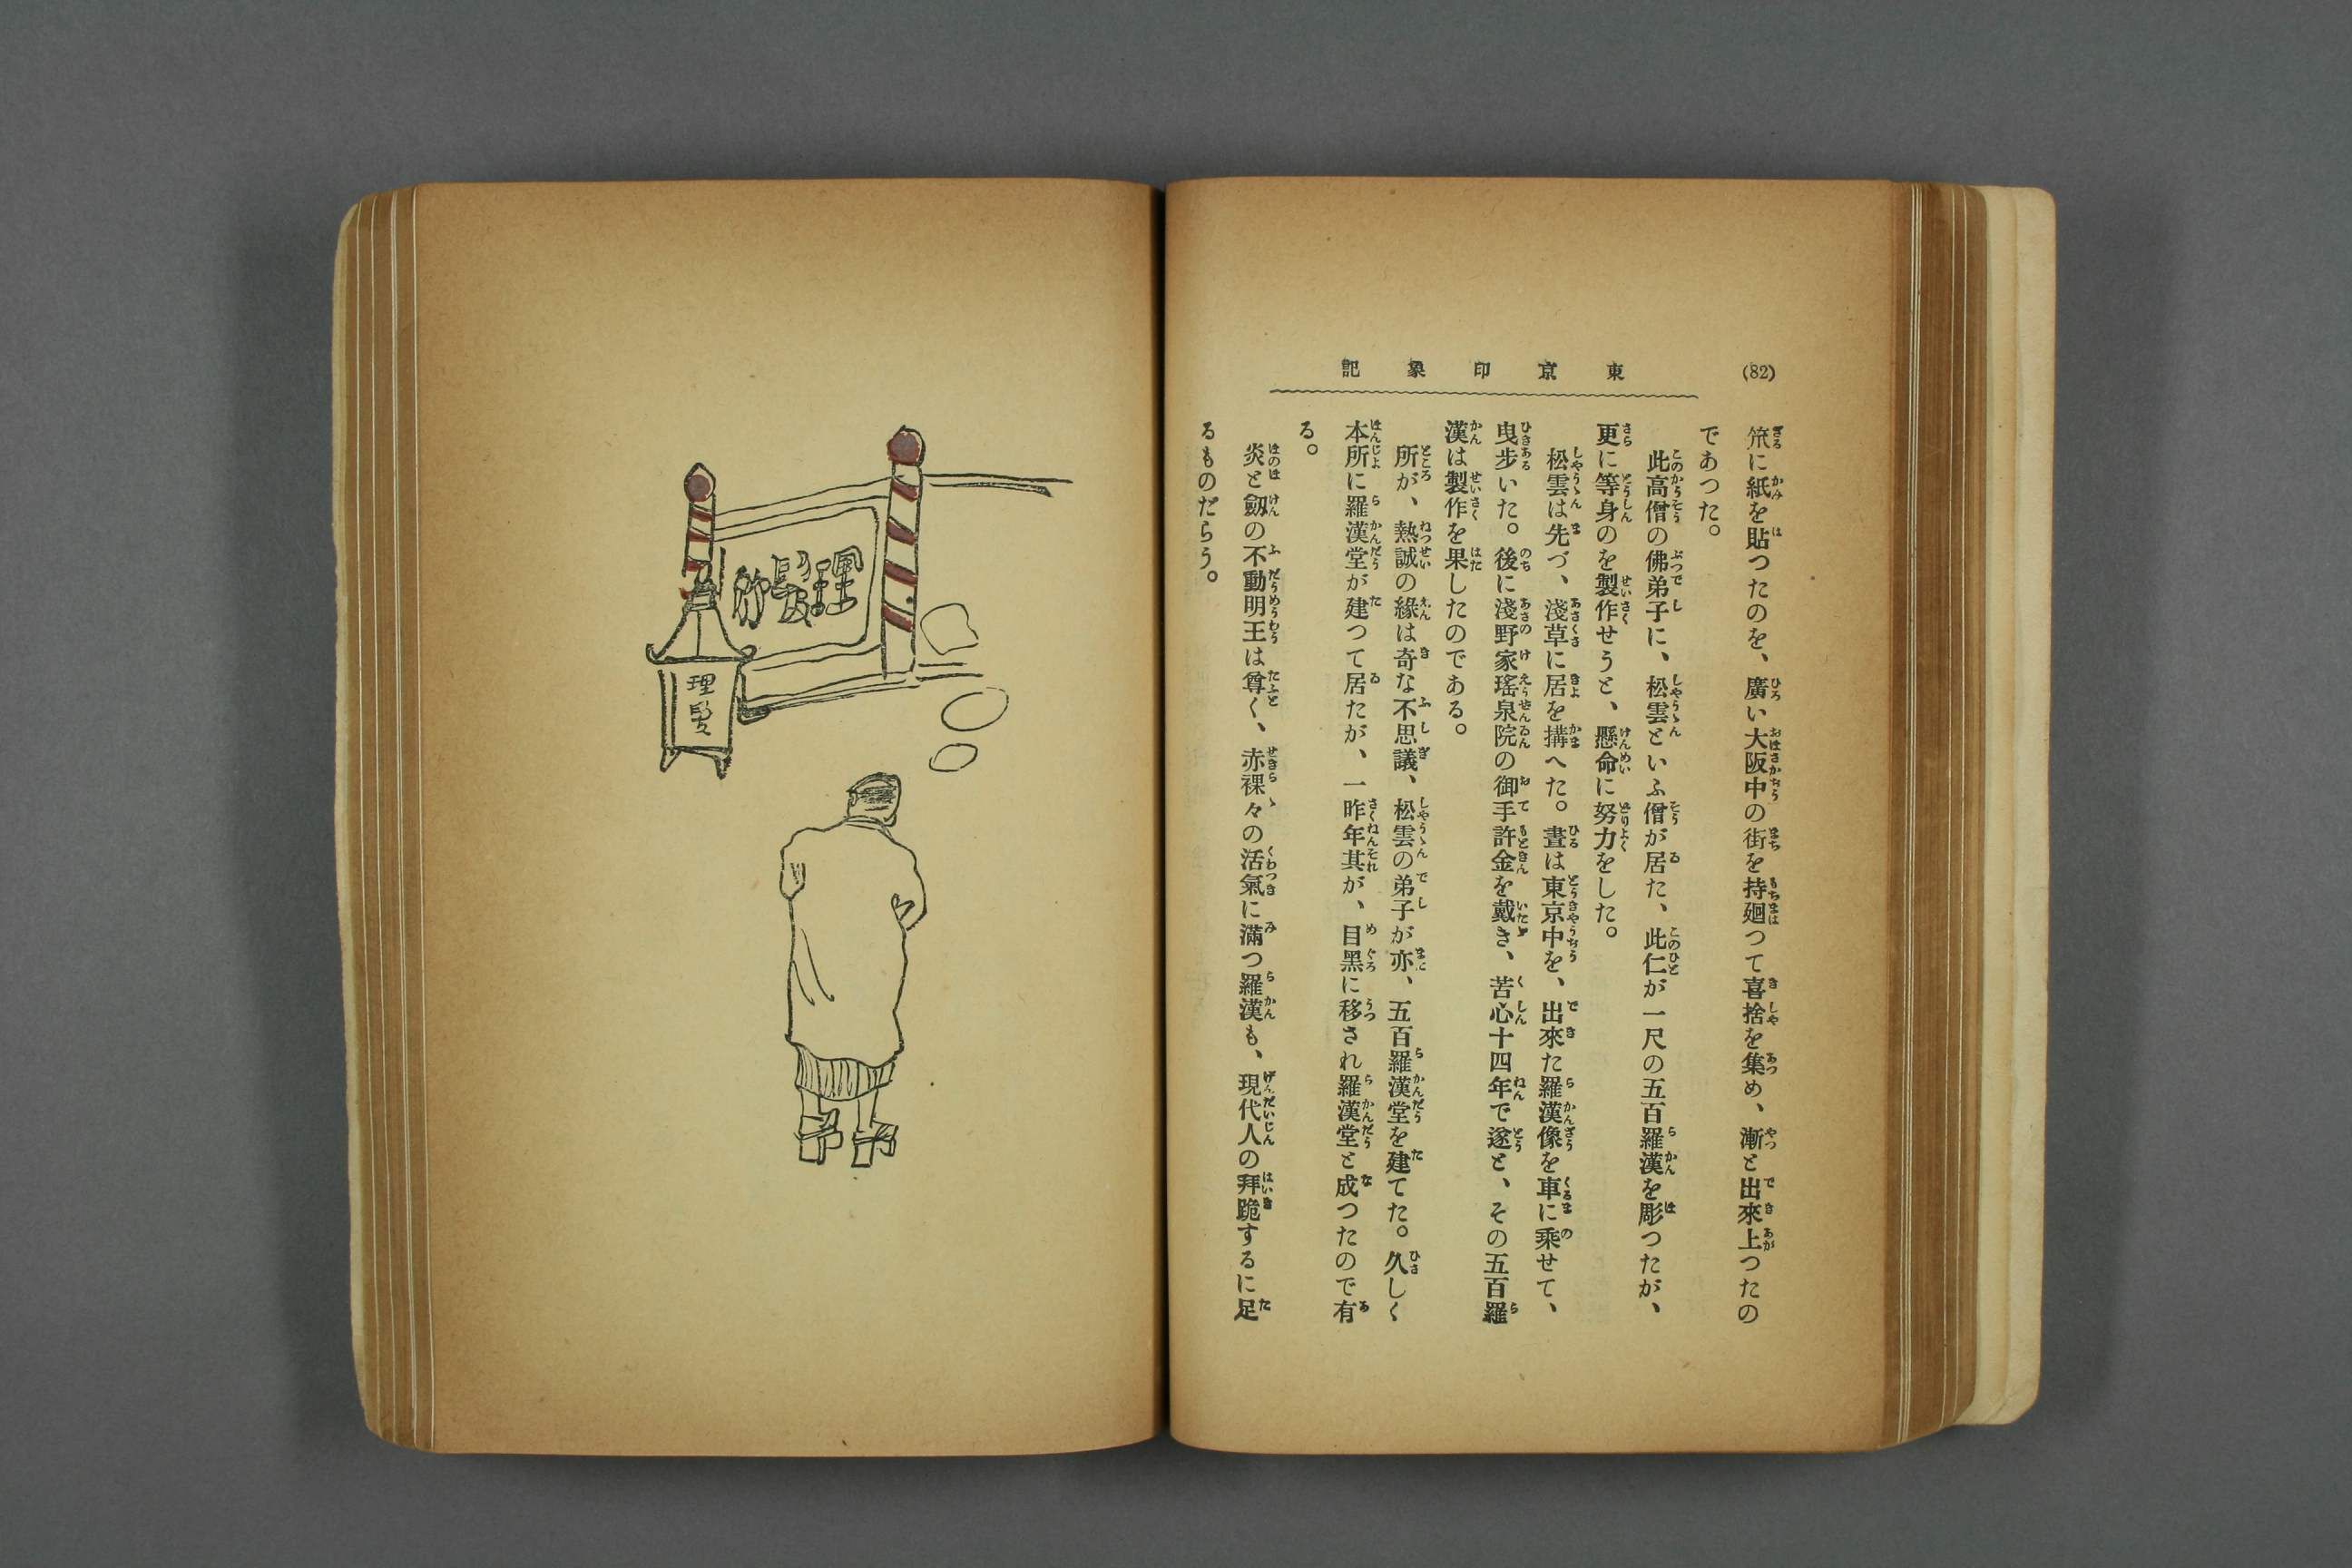 (82)
東京印象記
笊に紙を貼つたのを、廣い大阪中の街を持廻つて喜捨を集め、漸と出來上つたの
であつた。
此高僧の佛弟子に、松雲といふ僧が居た、此仁が一尺の五百羅漢を彫つたが、
更に等身のを製作せうと、懸命に努力をした。
松雲は先づ、淺草に居を搆へた。晝は東京中を、出來た羅漢像を車に乘せて、
曳步いた。後に淺野家瑤泉院の御手許金を戴き、苦心十四年で遂と、その五百羅
漢は製作を果したのである。
所が、熱誠の緣は奇な不思議、松雲の弟子が亦、五百羅漢堂を建てた。久しく
本所に羅漢堂が建つて居たが、一昨年其が、目黑に移され羅漢堂と成つたので有
る。
炎と劔の不動明王は尊く、赤裸々の活氣に滿つ羅漢も、現代人の拜跪するに足
るものだらう。
理髮
理髮